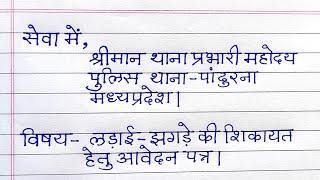 सेवा में,
श्रीमान थाना प्रभारी महोदय
पुलिस थाना-पांढुरना
मध्यप्रदेश।
विषय- लड़ाई-झगड़े की शिकायत
हेतु आवेदन पत्र।